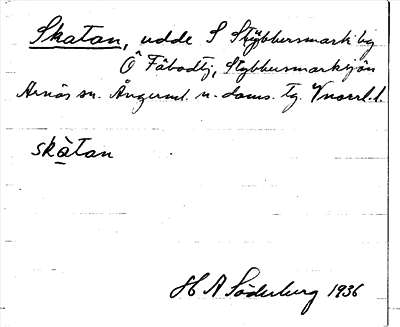 Skatan, udde S Stybbersmark by
Ö Fäbodtj, Stybbersmarksjön
Arnäs sn. Ångerml. n. doms. tg. Vnorrl. l.
skatan
H A Söderberg 1936